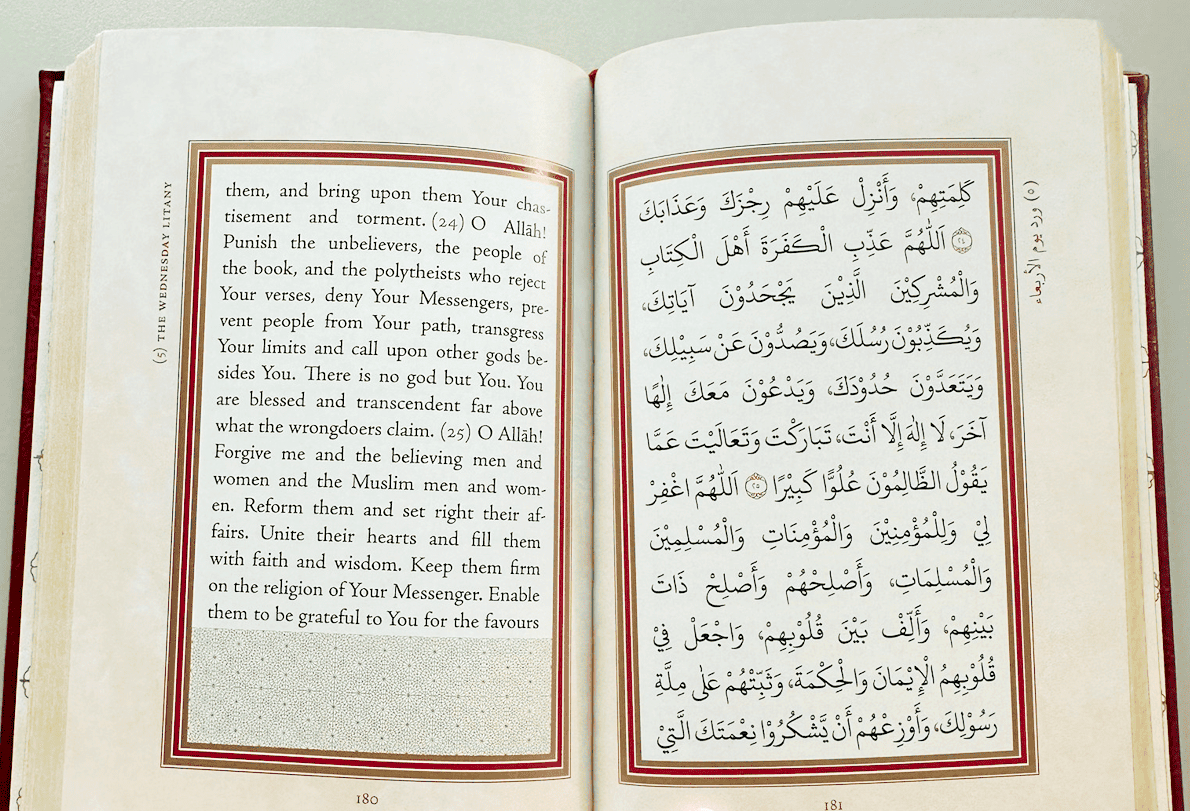 (5) THE WEDNESDAY LITANY
them, and bring upon them Your chas-
tisement and torment. (24) O Allāh!
Punish the unbelievers, the people of
the book, and the polytheists who reject
Your verses, deny Your Messengers, pre-
vent people from Your path, transgress
Your limits and call upon other gods be-
sides You. There is no god but You. You
are blessed and transcendent far above
what the wrongdoers claim. (25) O Allāh!
Forgive me and the believing men and
women and the Muslim men and wom-
en. Reform them and set right their af-
fairs. Unite their hearts and fill them
with faith and wisdom. Keep them firm
on the religion of Your Messenger. Enable
them to be grateful to You for the favours
180
(٥) ورد يوم الأربعاء
كَلِمَتِهِمْ، وَأَنْزِلْ عَلَيْهِمْ رِجْزَكَ وَعَذَابَكَ
٢٤ اَللّٰهُمَّ عَذِّبِ الْكَفَرَةَ أَهْلَ الْكِتَابِ
وَالْمُشْرِكِيْنَ الَّذِيْنَ يَجْحَدُوْنَ آيَاتِكَ،
وَيُكَذِّبُوْنَ رُسُلَكَ، وَيَصُدُّوْنَ عَنْ سَبِيْلِكَ،
وَيَتَعَدَّوْنَ حُدُوْدَكَ، وَيَدْعُوْنَ مَعَكَ إِلٰهًا
آخَرَ، لَا إِلٰهَ إِلَّا أَنْتَ، تَبَارَكْتَ وَتَعَالَيْتَ عَمَّا
يَقُوْلُ الظَّالِمُوْنَ عُلُوًّا كَبِيْرًا ٢٥ اَللّٰهُمَّ اغْفِرْ
لِيْ وَلِلْمُؤْمِنِيْنَ وَالْمُؤْمِنَاتِ وَالْمُسْلِمِيْنَ
وَالْمُسْلِمَاتِ، وَأَصْلِحْهُمْ وَأَصْلِحْ ذَاتَ
بَيْنِهِمْ، وَأَلِّفْ بَيْنَ قُلُوْبِهِمْ، وَاجْعَلْ فِيْ
قُلُوْبِهِمُ الْإِيْمَانَ وَالْحِكْمَةَ، وَثَبِّتْهُمْ عَلٰى مِلَّةِ
رَسُوْلِكَ، وَأَوْزِعْهُمْ أَنْ يَّشْكُرُوْا نِعْمَتَكَ الَّتِيْ
181